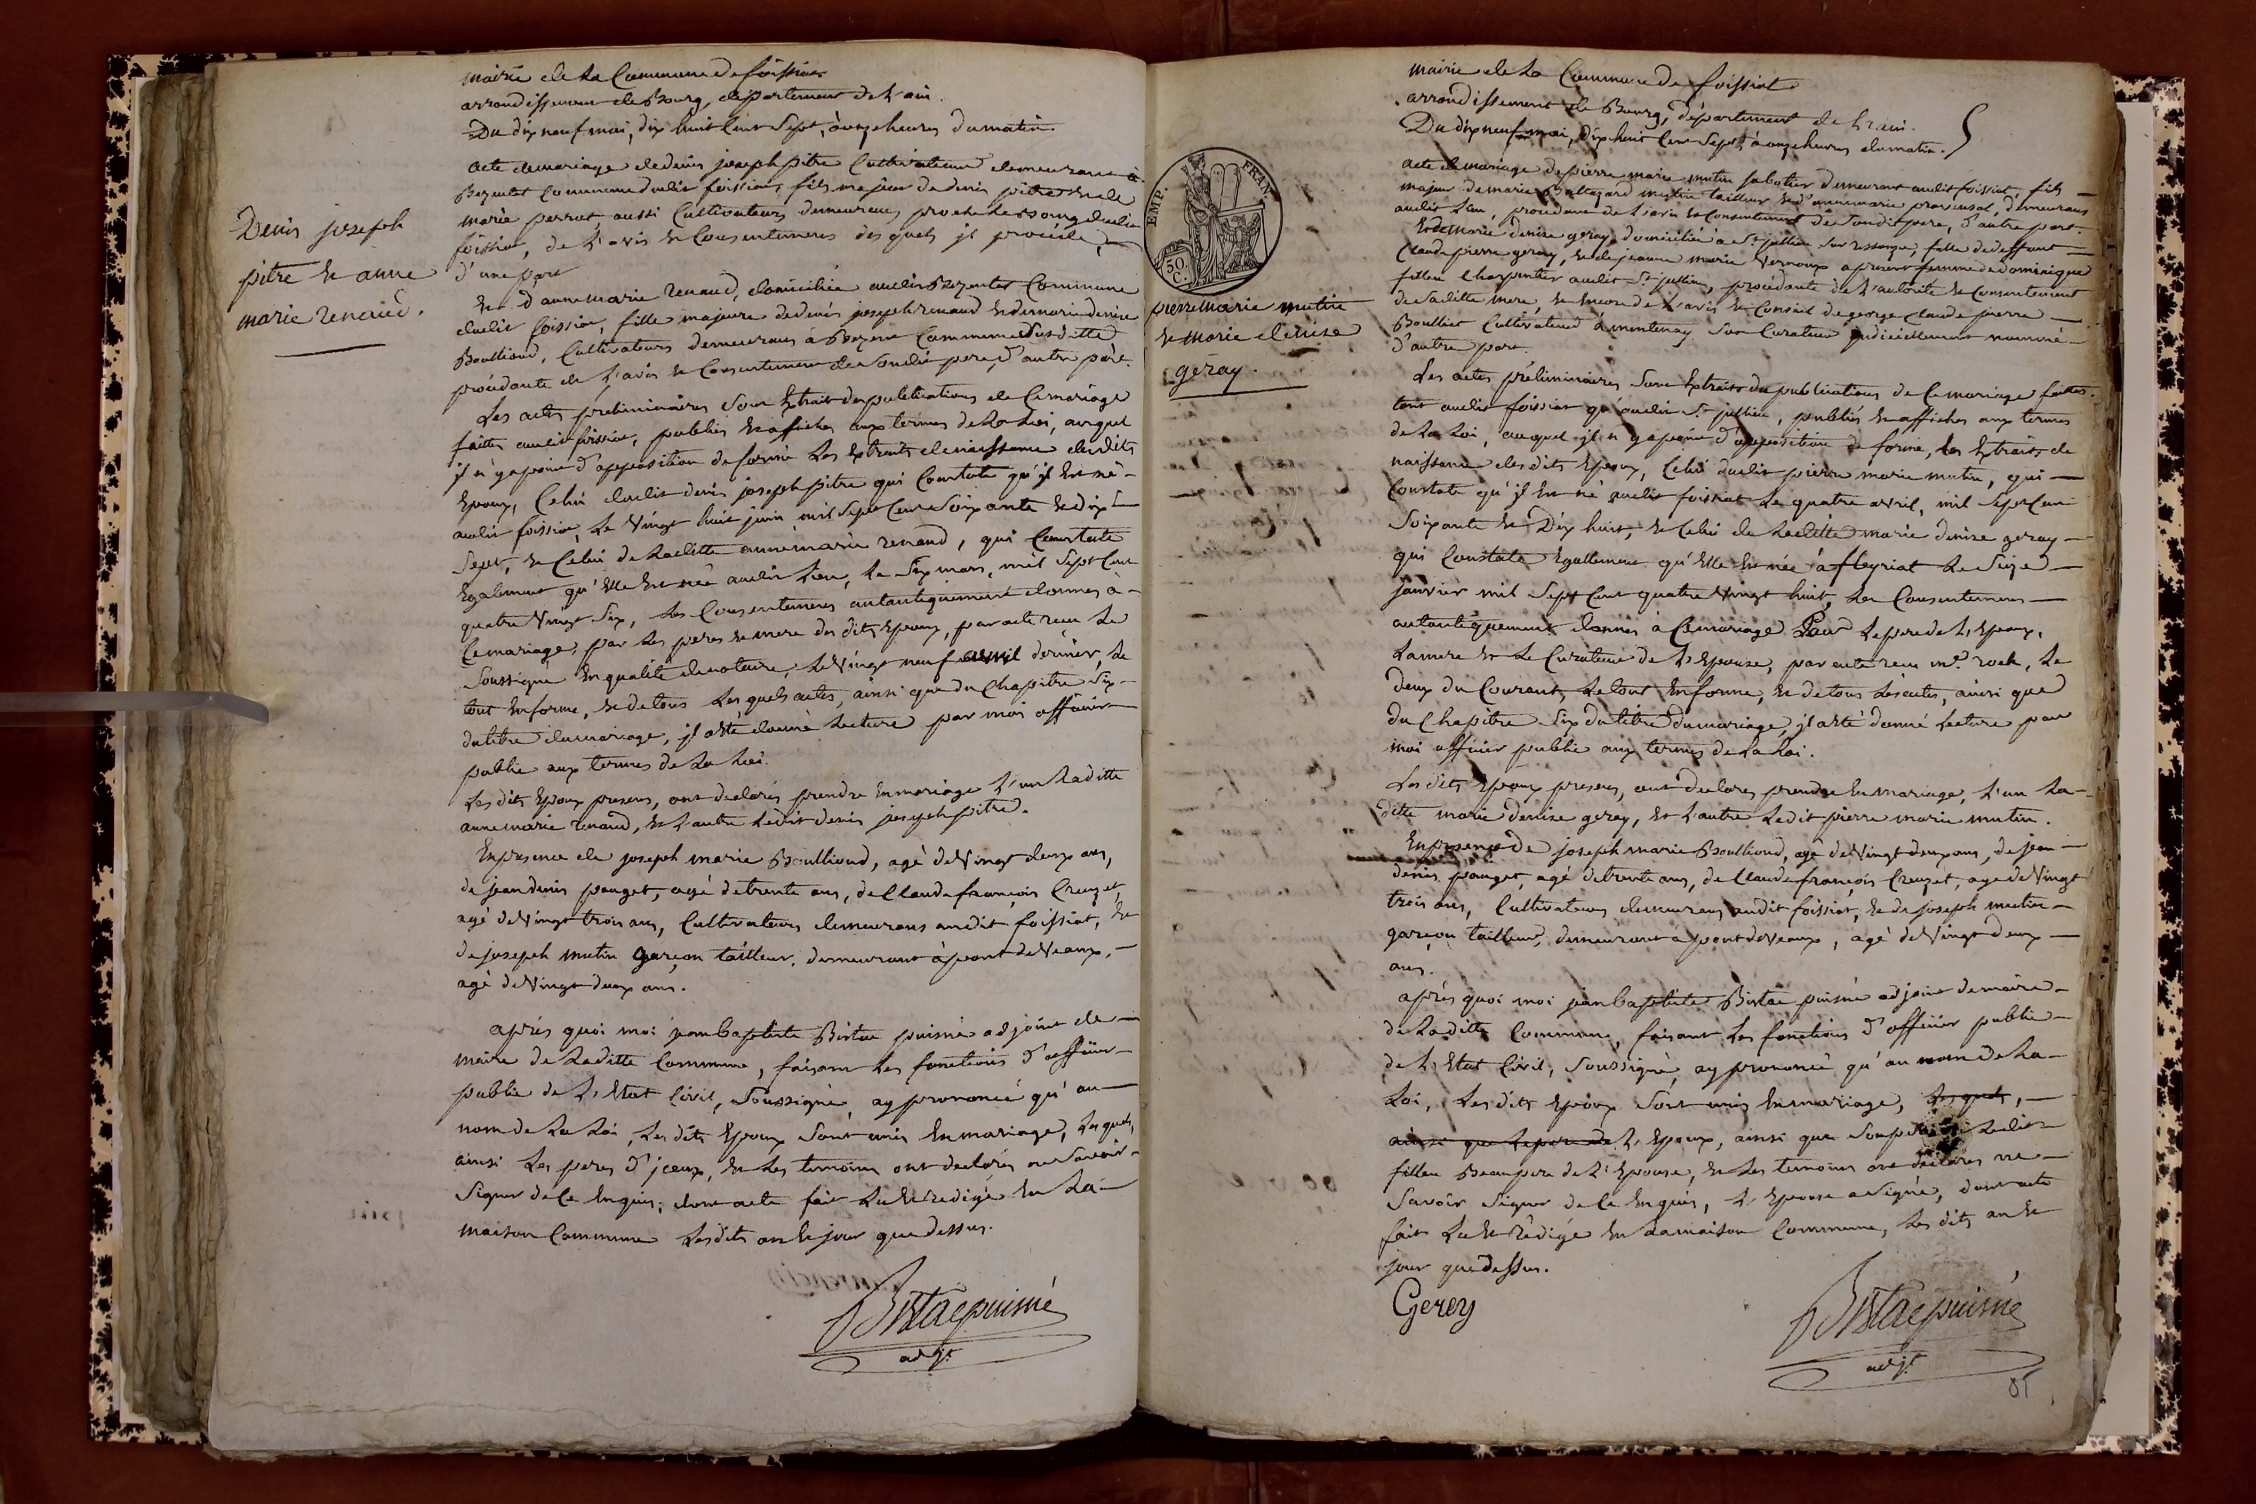 mairie de la Commune de foissiat
arrondissement de Bourg, département de l'ain.
Du dix neuf mai, dix huit Cent Sept, à onze heures du matin.
acte de mariage de denis joseph pitre Cultivateur demeurant à
Bezentet Commune dudit foissiat, fils majeur de denis pitre et de
marie perrot aussi Cultivateurs demeurans proche le Bourg dudit
foissiat, de l'avis et Consentement des quels il procéde,
d'une part
Denis joseph
pitre et anne
marie renaud.
Et d'anne marie renaud, domiciliée audit Bezentet Commune
dudit foissiat, fille majeure de denis joseph renaud et de marie denise
Boullioud, Cultivateurs demeurans à Bezentet Commune Susditte
procédante de l'avis et Consentement de Sondit pere, d'autre part.
Les actes préliminaires Sont Extrait des publications de Ce mariage
faittes audit foissiat, publiés et affichés aux termes de la Loi, auquel
il n'y a point d'opposition de formé Les Extraits de naissance desdits
Epoux, Celui dudit denis joseph pitre qui Constate qu'il Est né -
audit foissiat, Le Vingt huit juin mil Sept Cent Soixante et dix
Sept, et Celui de Laditte anne marie renaud, qui Constate
Egalement qu'Elle Est née audit Lieu, Le Six mars, mil Sept Cent
quatre Vingt Six, Les Consentemens autantiquement donnés à -
Ce mariage, par Les peres et mere des dits Epoux, par acte recu Le
Soussigné En qualité de notaire, Le Vingt neuf avril dernier, Le
tout En forme, et de tous Les quels actes, ainsi que du Chapitre Six -
du titre du mariage, il a été donné Lecture par moi officier
public aux termes de La Loi.
Les dits Epoux presens, ont declarés prendre En mariage L'un Laditte
anne marie renaud, Et L'autre Ledit denis joseph pitre.
En présence de joseph marie Boullioud, agé de Vingt deux ans,
de jean denis pauget, agé de trente ans, de Claude françois Creuzet,
agé de Vingt trois ans, Cultivateurs demeurans audit foissiat, Et
de joseph mutin garçon tailleur, demeurant à pont de Veaux, -
agé de Vingt deux ans.
après quoi moi jean baptiste Bistac puisné adjoint de -
maire de Laditte Commune, faisant Les fonctions d'officier -
public de L'Etat Civil, Soussigné, ay prononcé qu'au -
nom de La Loi, Les dits Epoux Sont unis En mariage, Les quels,
ainsi Les peres d'iceux, Et Les temoins ont declarés ne Savoir -
Signer de Ce Enquis, dont acte fait Lu Et redigé En La -
maison Commune Lesdits an Et jour que dessus.
Bistac puisné
adjt.
mairie de La Commune de foissiat
arrondissement de Bourg, département de L'ain.
Du dix neuf mai, dix huit Cent Sept, à onze heures du matin.
acte de mariage de pierre marie mutin Sabotier demeurant audit foissiat, fils -
majeur de marie Baltazard mutin tailleur et d'anne marie provensal, demeurans
audit Lieu, procédant de L'avis et Consentement de Sondit pere, d'une part.
TIMP.
FRAN.
50
C.
pierre marie mutin
et marie denise
geray.
Et de marie denise geray domiciliée à St. jullien Sur ressouze, fille de deffunt -
Claude pierre geray, et de jeanne marie Vernoux apresent femme de dominique
filleu Charpentier audit St. jullien, procédante de L'autorité et Consentement
de Saditte mere, et Encore de L'avis et Conseil de george Claude pierre -
Boullier Cultivateur à mentenay Son Curateur judiciellement nommé -
d'autre part.
Les actes préliminaires Sont Extraits des publications de Ce mariage faittes
tant audit foissiat qu'audit St. jullien, publiés et affichés aux termes
de La Loi, auquel il n'y a point d'opposition de formé, Les Extraits de
naissance desdits Epoux, Celui dudit pierre marie mutin, qui -
Constate qu'il Est né audit foissiat Le quatre avril, mil Sept Cent
Soixante et Dix huit, et Celui de Laditte marie denise geray -
qui Constate Egallement qu'Elle Est née à fleyriat Le Seize -
janvier mil Sept Cent quatre Vingt huit, Les Consentemens -
autantiquement donnés à Ce mariage Par Le pere de L'Epoux,
La mere et Le Curateur de L'Epouse, par acte recu me. roch, Le
deux du Courant, Le tout En forme, et de tous Les actes, ainsi que
du Chapitre Six du titre du mariage, il a été donné Lecture par
moi officier public aux termes de La Loi.
Les dits Epoux presens, ont declarés prendre En mariage, L'un La -
ditte marie denise geray, Et L'autre Ledit pierre marie mutin.
En présence de joseph marie Boullioud, agé de Vingt deux ans, de jean -
denis pauget, agé de trente ans, de Claude françois Creuzet, agé de Vingt
trois ans, Cultivateurs demeurans audit foissiat, et de joseph mutin -
garçon tailleur, demeurant à pont de Veaux, agé de Vingt deux -
ans.
après quoi moi jean baptiste Bistac puisné adjoint de maire -
de Laditte Commune, faisant Les fonctions d'officier public -
de L'Etat Civil, Soussigné, ay prononcé qu'au nom de La -
Loi, Les dits Epoux Sont unis En mariage, Les quels, -
ainsi que Le pere de L'Epoux, ainsi que Son pere et Ledit -
filleu Beau pere de L'Epouse, et Les temoins ont declarés ne -
Savoir Signer de Ce Enquis, L'Epouse a Signé, dont acte
fait Lu Et redigé En La maison Commune, Les dits an Et
jour que dessus.
Gerey
Bistac puisné
adjt.